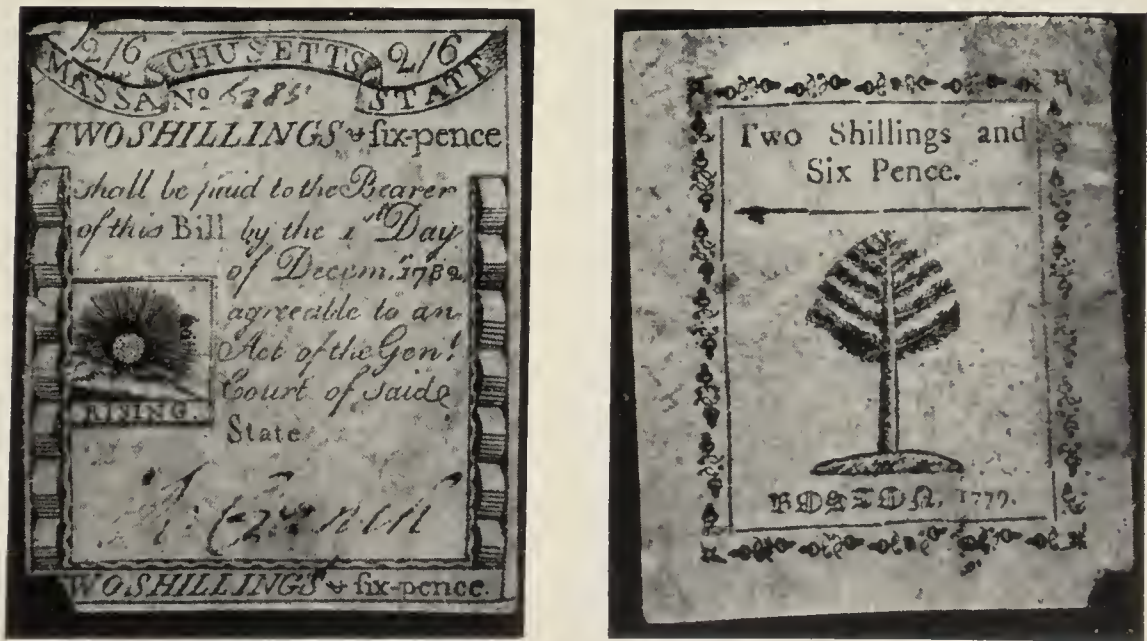 2/6 2/6
MASSA CHUSETTS STATE
Nº
TWO SHILLINGS & six-pence
Shall be paid to the Bearer
of this Bill by the 1st Day
of Decem. 1782
agreeable to an
Act of the Genl
Court of saide
State
RISING
WO SHILLINGS & six-pence.
Two Shillings and
Six Pence.
BOSTON, 1779.